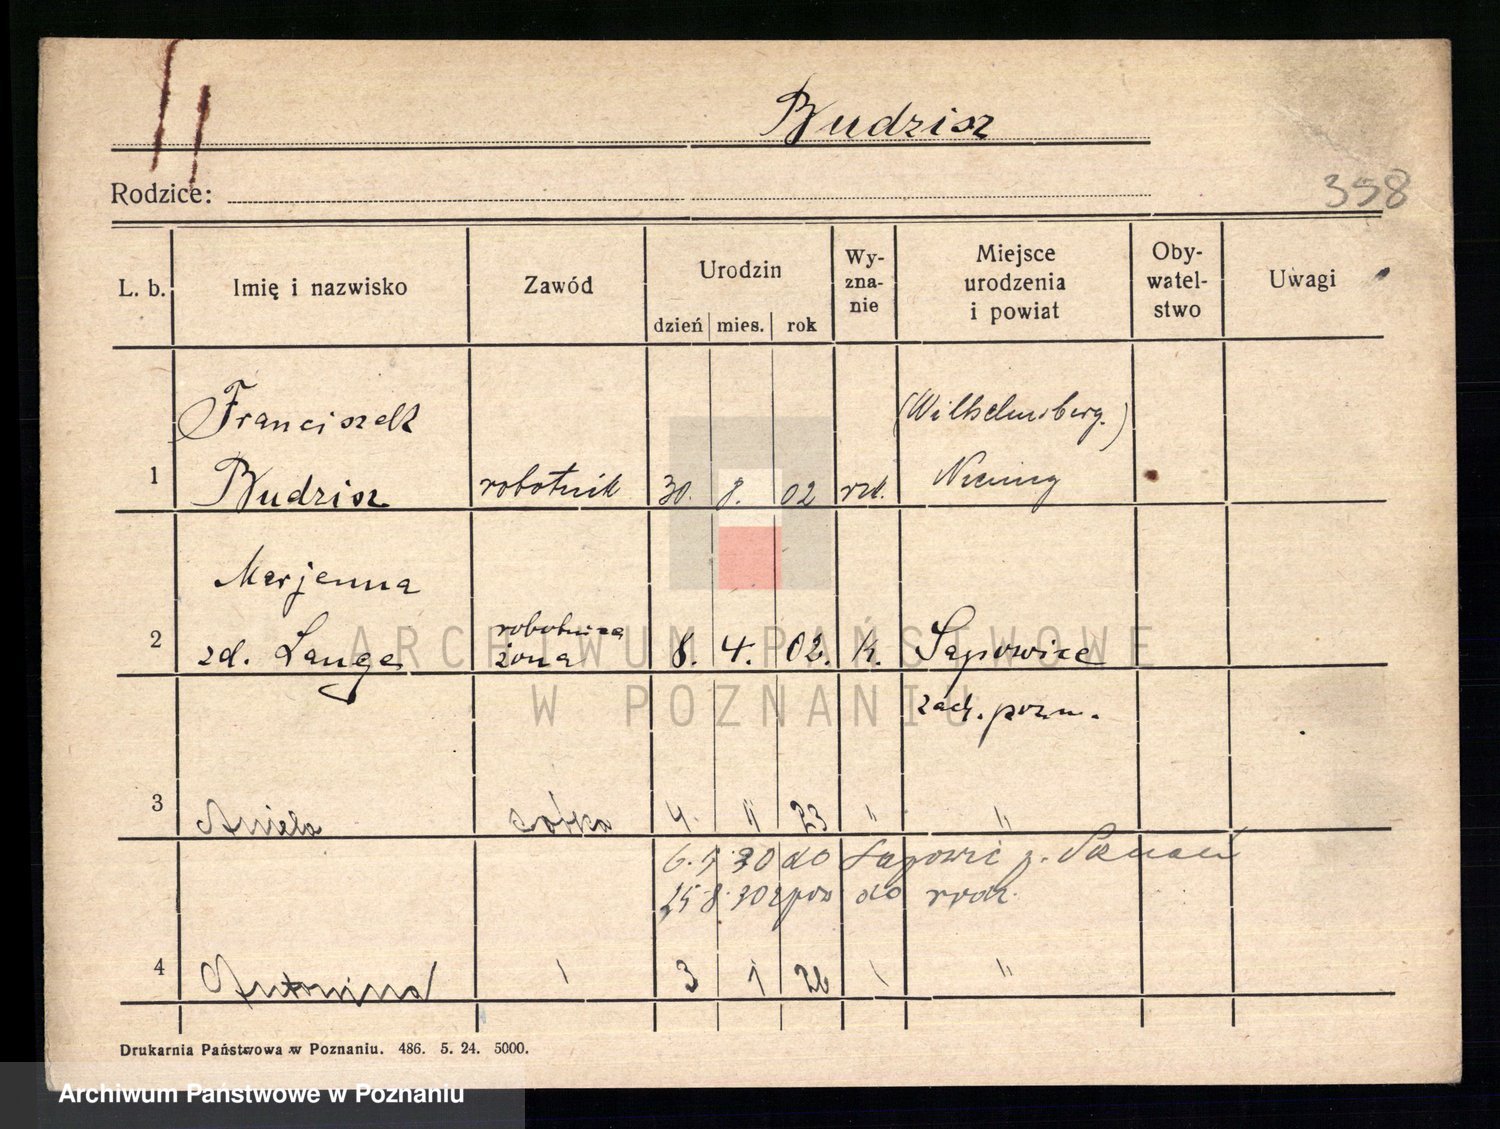 Budzisz
Rodzice:
358
L. b.
Imię i nazwisko
Zawód
Urodzin
dzień mies. rok
Wy-
zna-
nie
Miejsce
urodzenia
i powiat
Oby-
watel-
stwo
Uwagi
Franciszek (Wilhelmsberg.)
1 Budzisz robotnik 30. 8. 02 rzk.
Marjanna
robotnica
2 zd. Lange żona 8. 4. 02. k. Sapowice
zach. pozn.
3 Aniela córka 4. II 23 " "
6. 1. 30 do Sapowic p. Poznań
25 8. 30 z pow do rodz.
4 Antonina 3 1 26 "
Drukarnia Państwowa w Poznaniu. 486. 5. 24. 5000.
ARCHIWUM PAŃSTWOWE
W POZNANIU
Archiwum Państwowe w Poznaniu